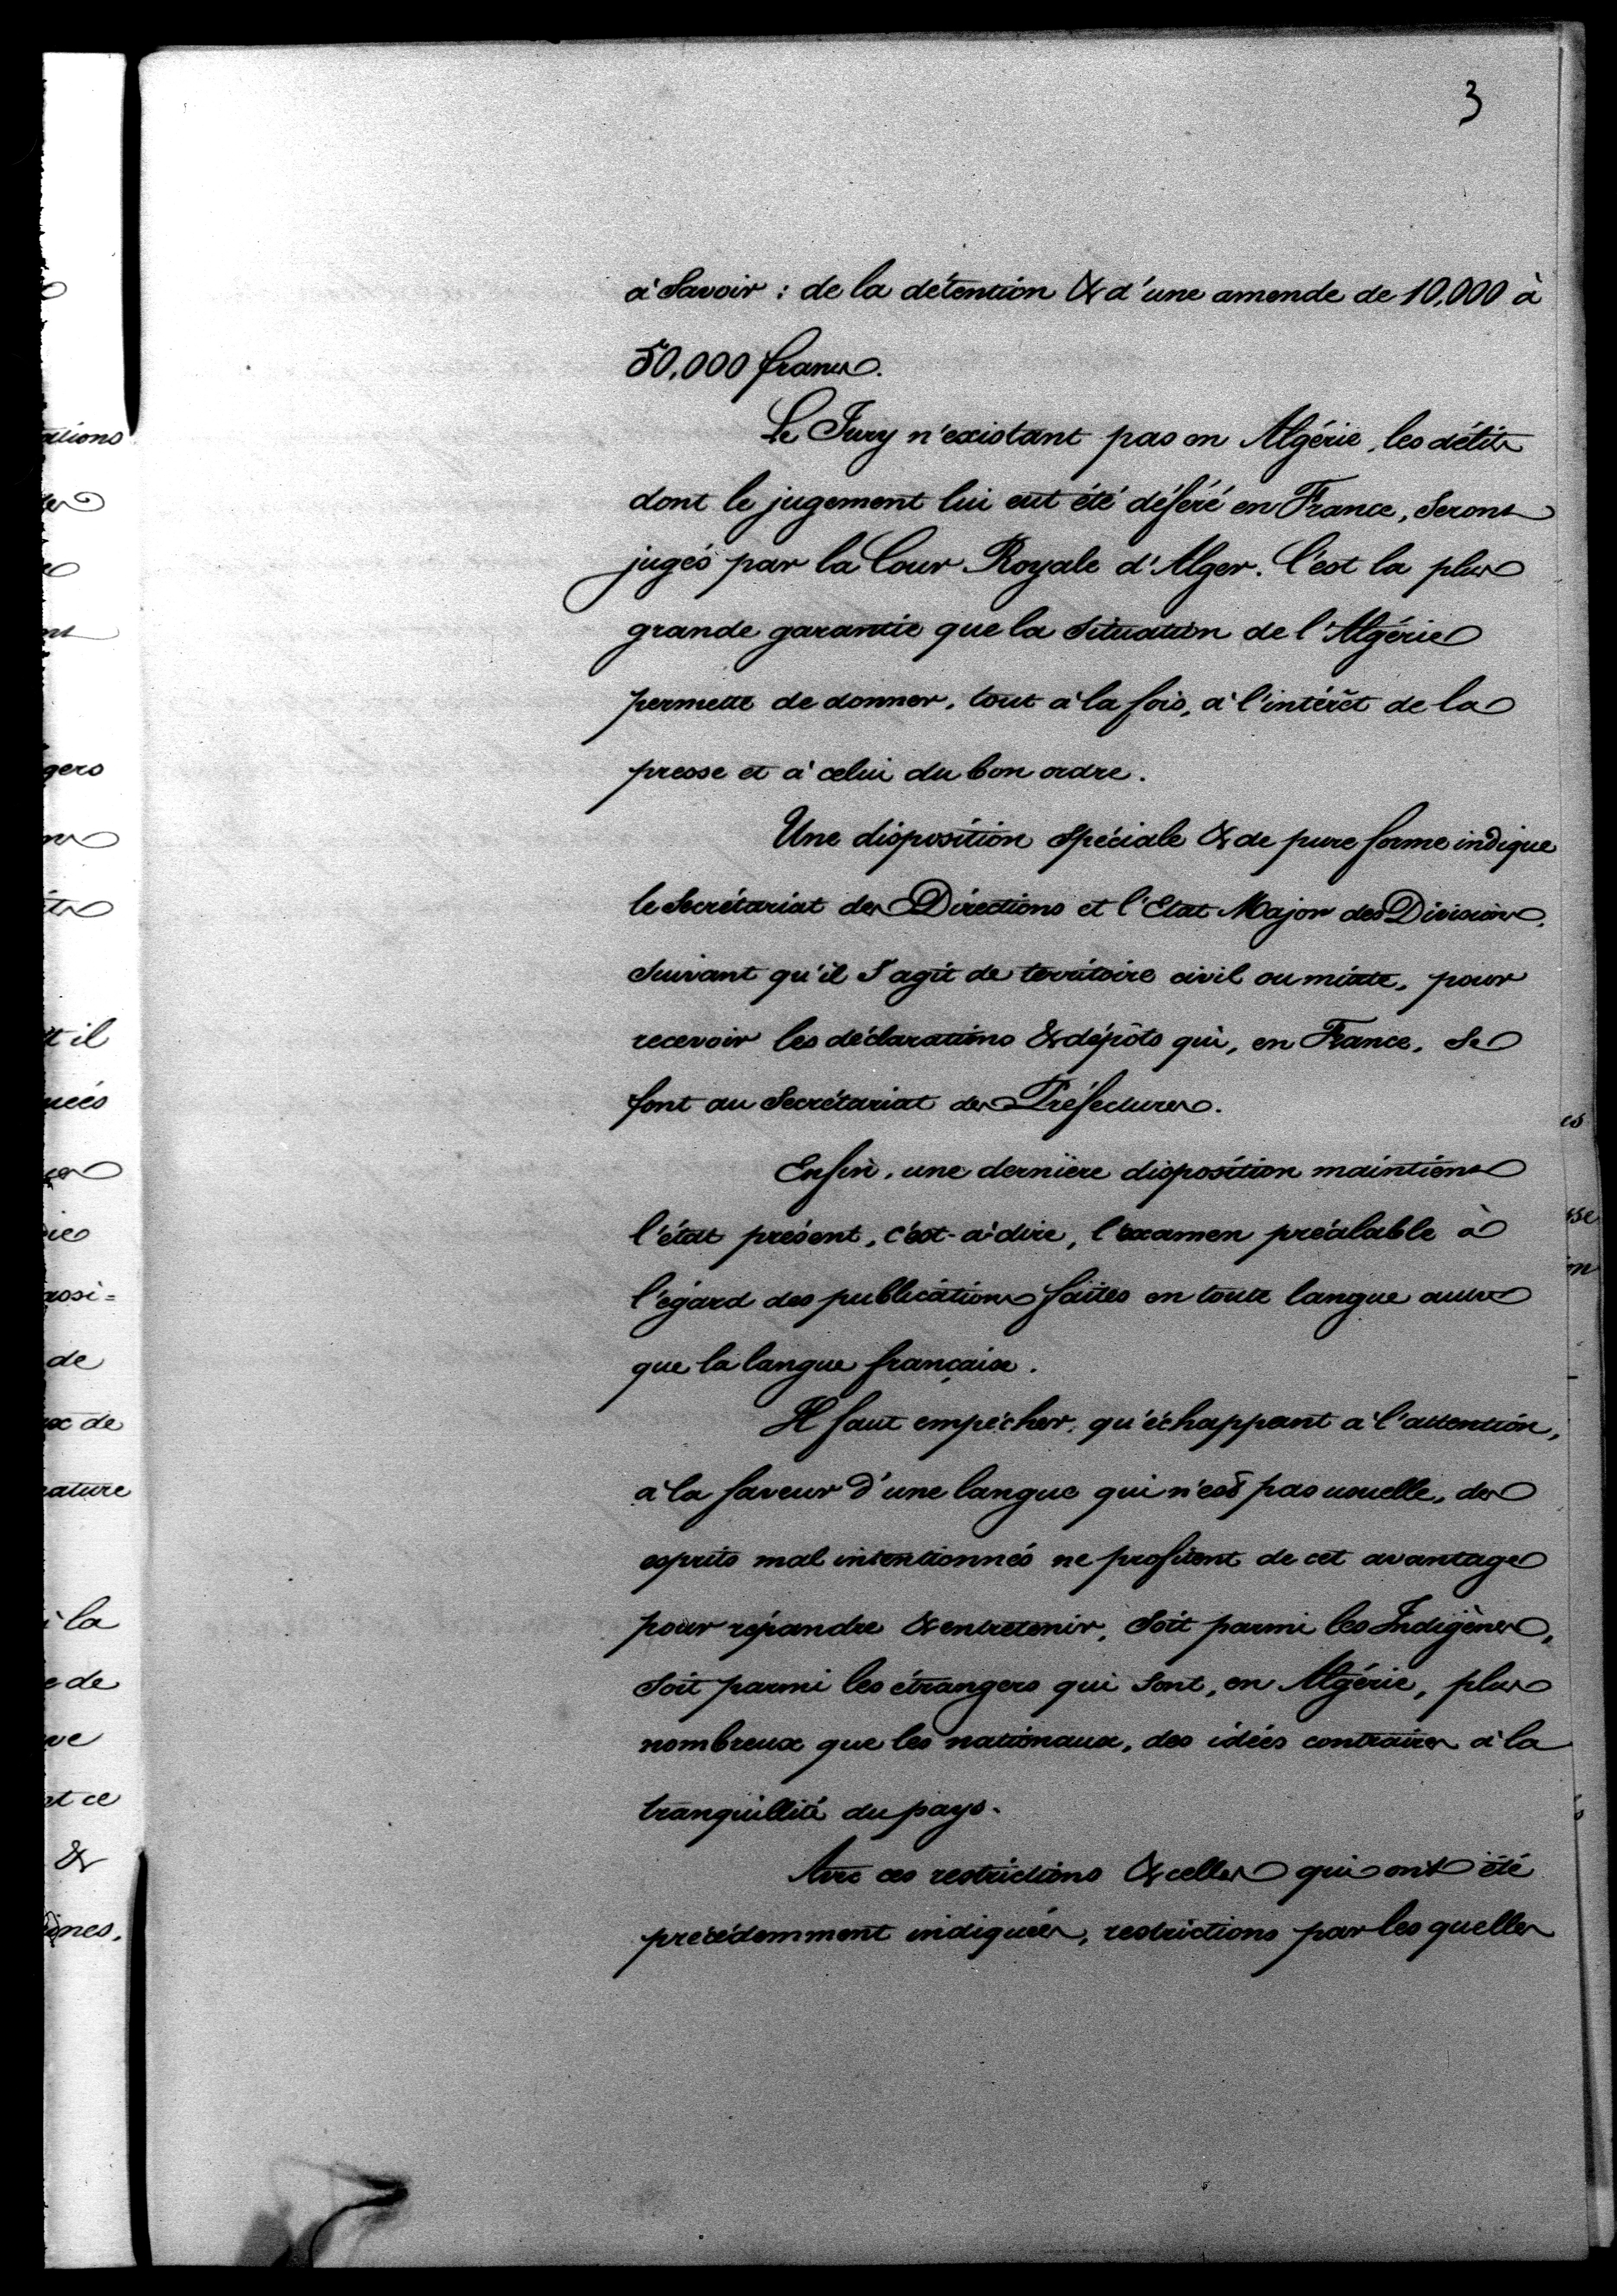 3
à Savoir : de la détention & d'une amende de 10,000 à
50,000 francs.
Le Jury n'existant pas en Algérie, les délits
dont le jugement lui eut été déféré en France, Seront
jugés par la Cour Royale d'Alger. C'est la plus
grande garantie que la Situation de l'Algérie
permette de donner, tout à la fois, à l'intérêt de la
presse et à celui du bon ordre.
Une disposition Spéciale & de pure forme indique
le Secrétariat des Directions et l'Etat Major des Divisions,
Suivant qu'il S'agit de territoire civil ou mixte, pour
recevoir les déclarations & dépôts qui, en France, Se
font au Secrétariat des Préfectures.
Enfin, une dernière disposition maintient
l'état présent, c'est-à-dire, l'examen préalable à
l'égard des publications faites en toute langue autre
que la langue française.
Il faut empêcher, qu'échappant à l'attention,
à la faveur d'une langue qui n'est pas usuelle, des
esprits mal intentionnés ne profitent de cet avantage
pour répandre & entretenir, Soit parmi les Indigènes,
Soit parmi les étrangers qui Sont, en Algérie, plus
nombreux que les nationaux, des idées contraires à la
tranquillité du pays.
Avec ces restrictions & celles qui ont été
précédemment indiquées, restrictions par les quelles